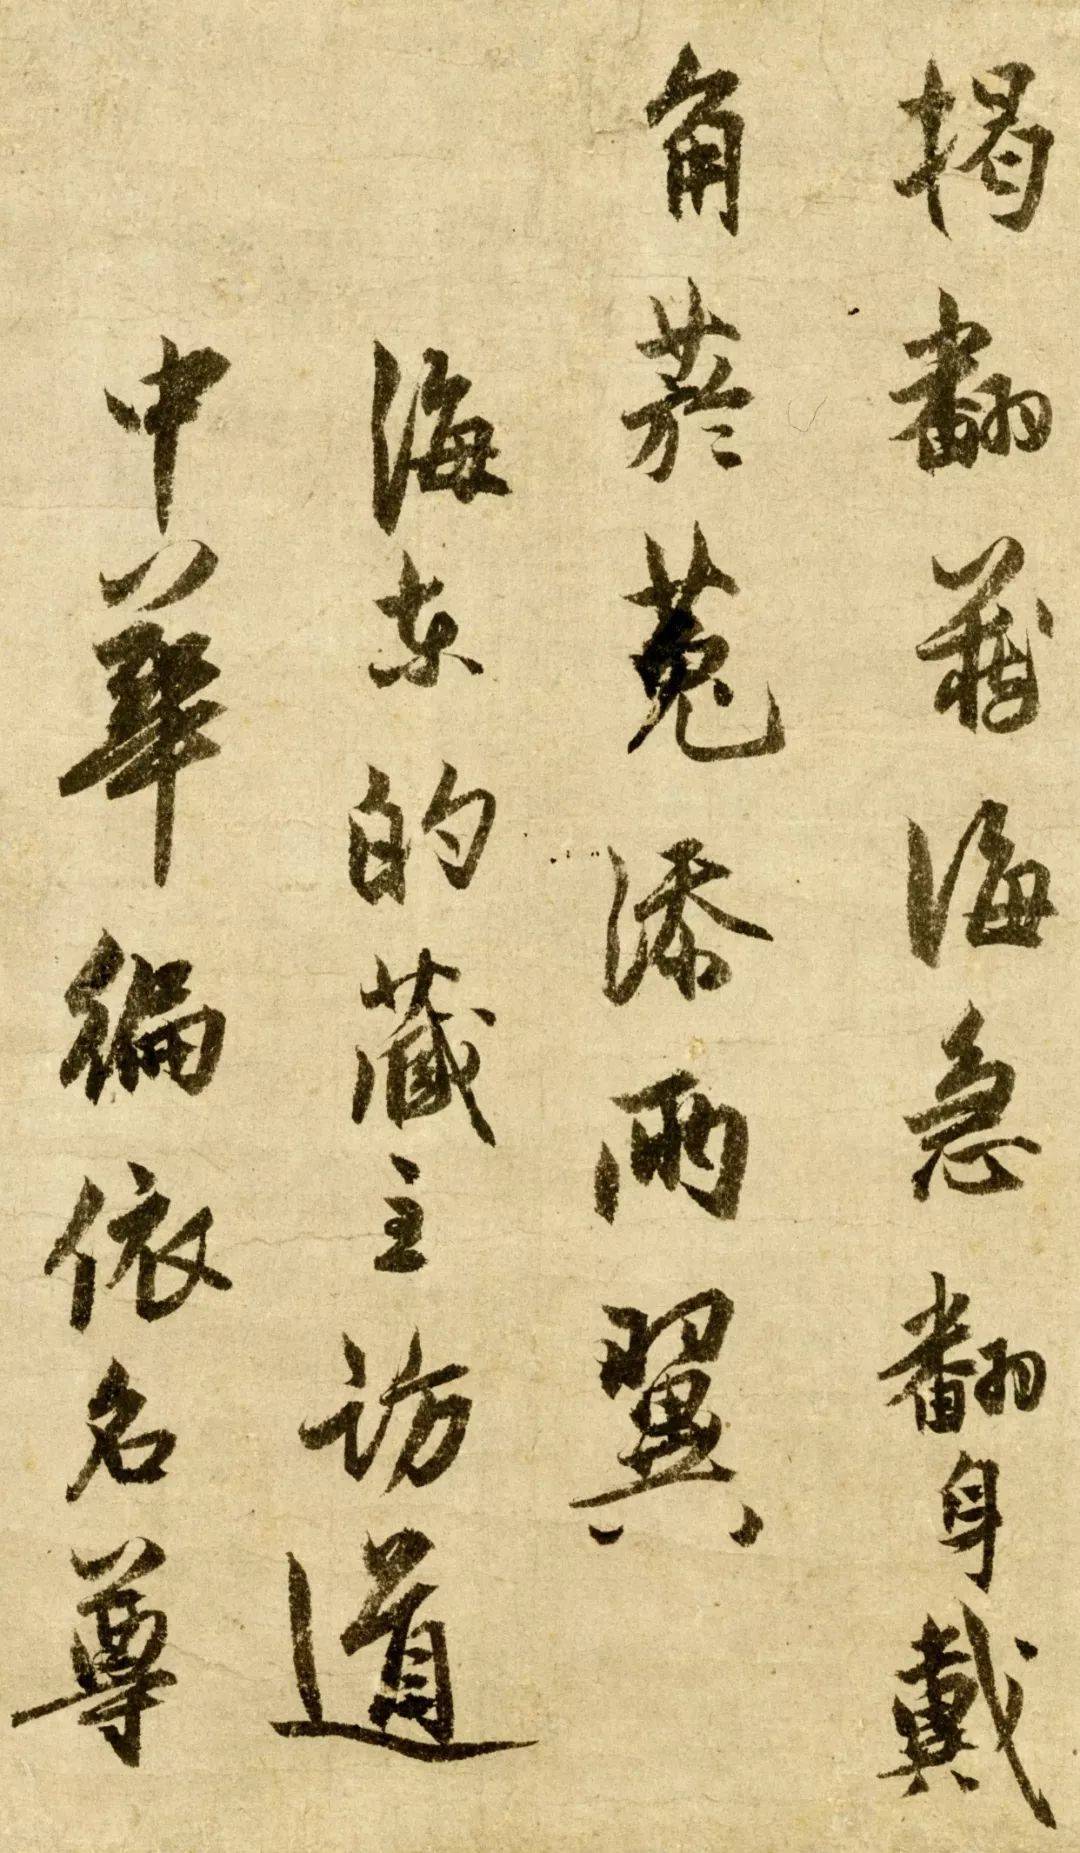 揭翻義海急翻身戴
角菸菟添兩翼
海東的藏主訪道
中華徧依名尊